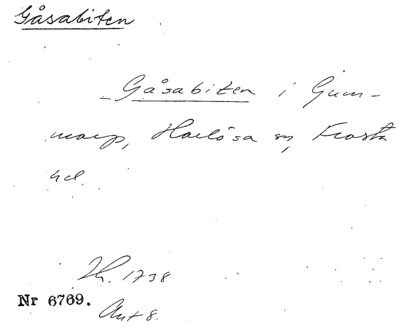 Gåsabiten
Gåsabiten i Gum-
marp, Harlösa sn, Frosta
hd.
Th. 1738
Nr 6769.
Ant 8.